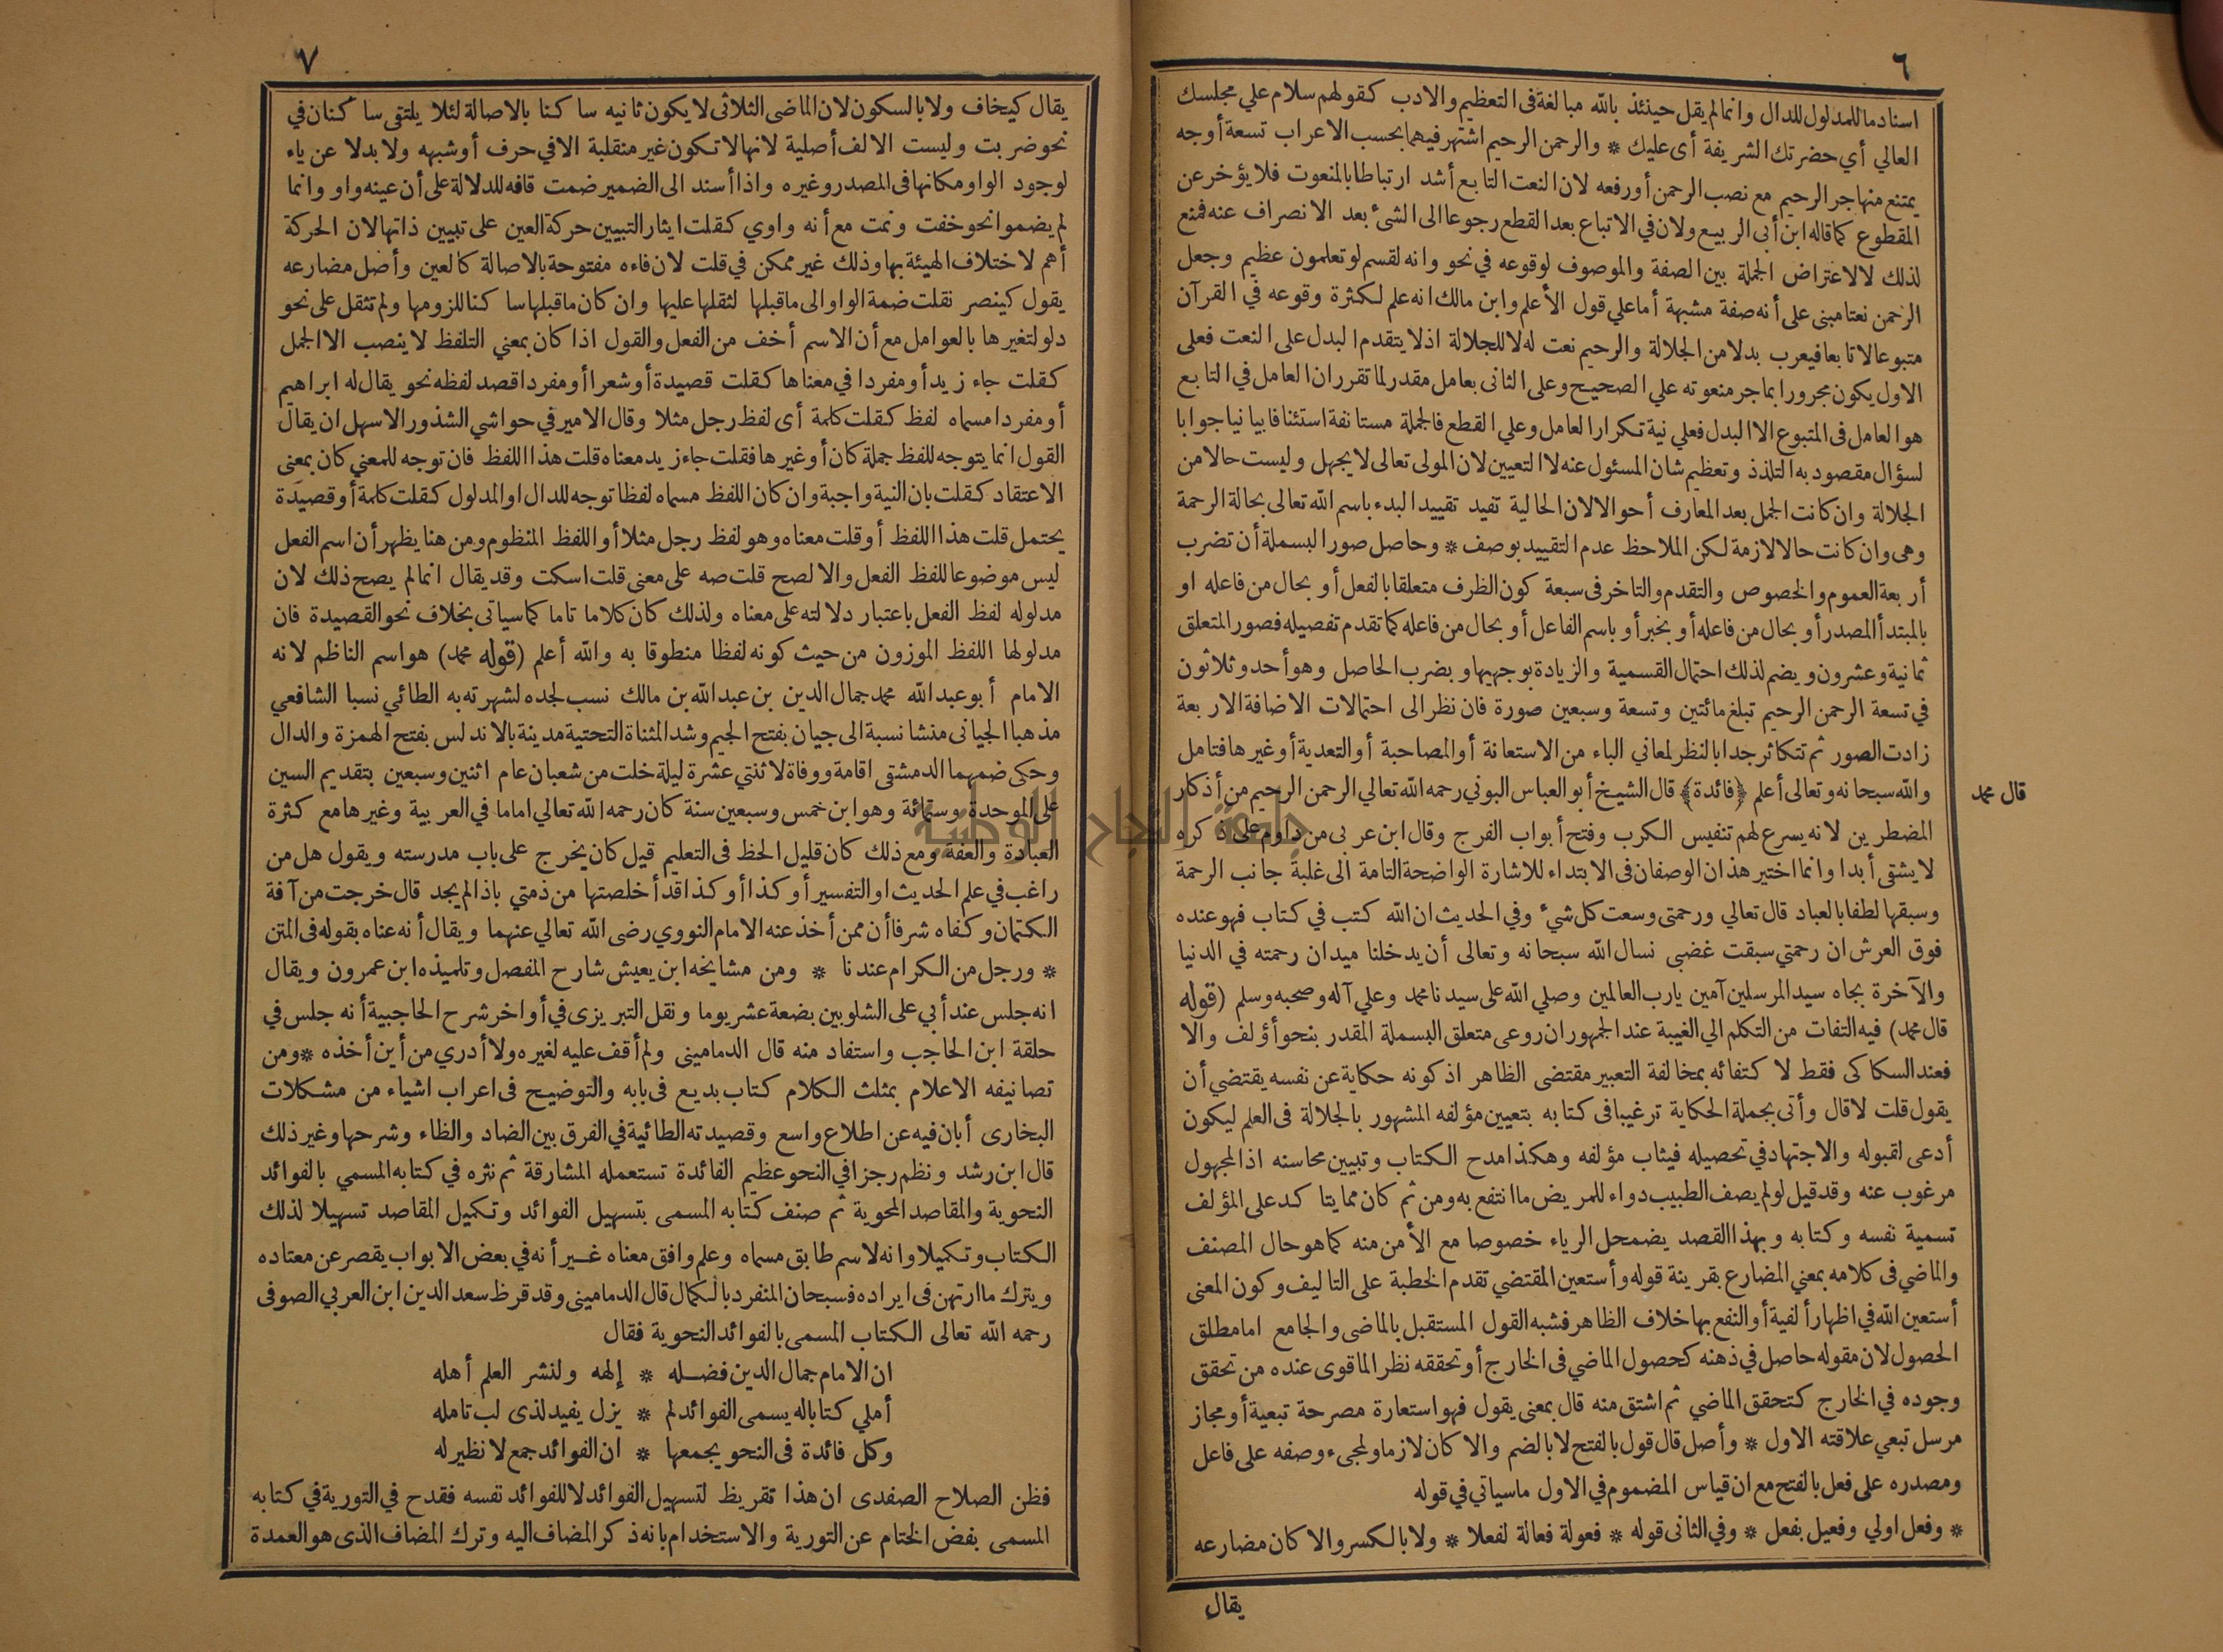 ٦
اسنادما للمدلول للدال وانما لم يقل حينئذ بالله مبالغة فى التعظيم والادب كقولهم سلام علي مجلسك
العالي أي حضرتك الشريفة أى عليك * والرحمن الرحيم اشتهر فيهما بحسب الاعراب تسعة أوجه
يمتنع منها جر الرحيم مع نصب الرحمن أو رفعه لان النعت التابع أشد ارتباطا بالمنعوت فلا يؤخر عن
المقطوع كما قاله ابن أبى الربيع ولان في الاتباع بعد القطع رجوعا الى الشئ بعد الانصراف عنه فمنع
لذلك لا لاعتراض الجملة بين الصفة والموصوف لوقوعه في نحو وانه لقسم لو تعلمون عظيم وجعل
الرحمن نعتا مبنى على أنه صفة مشبهة أما علي قول الأعلم وابن مالك انه علم لكثرة وقوعه في القرآن
متبوعا لا تابعا فيعرب بدلا من الجلالة والرحيم نعت له لا للجلالة اذ لا يتقدم البدل على النعت فعلى
الاول يكون مجرورا بما جر منعوته علي الصحيح وعلى الثانى بعامل مقدر لما تقرر ان العامل في التابع
هو العامل فى المتبوع الا البدل فعلي نية تكرار العامل وعلي القطع فالجملة مستانفة استئنافا بيانيا جوابا
لسؤال مقصود به التلذذ وتعظيم شان المسئول عنه لا التعيين لان المولى تعالى لا يجهل وليست حالا من
الجلالة وان كانت الجمل بعد المعارف أحوالا لان الحالية تفيد تقييد البدء باسم الله تعالى بحالة الرحمة
وهى وان كانت حالا لازمة لكن الملاحظ عدم التقييد بوصف * وحاصل صور البسملة أن تضرب
أربعة العموم والخصوص والتقدم والتاخر فى سبعة كون الظرف متعلقا بالفعل أو بحال من فاعله او
بالمبتدأ المصدر أو بحال من فاعله أو بخبر أو باسم الفاعل أو بحال من فاعله كما تقدم تفصيله فصور المتعلق
ثمانية وعشرون ويضم لذلك احتمال القسمية والزيادة بوجهيها وبضرب الحاصل وهو أحد وثلاثون
في تسعة الرحمن الرحيم تبلغ مائتين وتسعة وسبعين صورة فان نظر الى احتمالات الاضافة الاربعة
زادت الصور ثم تتكاثر جدا بالنظر لمعاني الباء من الاستعانة أو المصاحبة أو التعدية أو غيرها فتامل
والله سبحانه وتعالى أعلم ﴿فائدة﴾ قال الشيخ أبو العباس البوني رحمه الله تعالي الرحمن الرحيم من أذكار
قال محمد
المضطرين لانه يسرع لهم تنفيس الكرب وفتح أبواب الفرج وقال ابن عربى من داوم على ذكره
لا يشقى أبدا وانما اختير هذان الوصفان فى الابتداء للاشارة الواضحة التامة الى غلبة جانب الرحمة
وسبقها لطفا بالعباد قال تعالي ورحمتى وسعت كل شيء وفي الحديث ان الله كتب في كتاب فهو عنده
فوق العرش ان رحمتي سبقت غضبى نسال الله سبحانه وتعالى أن يدخلنا ميدان رحمته في الدنيا
والآخرة بجاه سيد المرسلين آمين يارب العالمين وصلي الله على سيدنا محمد وعلي آله وصحبه وسلم (قوله
قال محمد) فيه التفات من التكلم الي الغيبة عند الجمهور ان روعى متعلق البسملة المقدر بنحو أؤلف والا
فعند السكاكى فقط لا كتفائه بمخالفة التعبير مقتضى الظاهر اذ كونه حكاية عن نفسه يقتضي أن
يقول قلت لا قال وأتى بجملة الحكاية ترغيبا فى كتابه بتعيين مؤلفه المشهور بالجلالة فى العلم ليكون
أدعى لقبوله والاجتهاد في تحصيله فيثاب مؤلفه وهكذا مدح الكتاب وتبيين محاسنه اذ المجهول
مرغوب عنه وقد قيل لو لم يصف الطبيب دواء للمريض ما انتفع به ومن ثم كان مما يتا كد على المؤلف
تسمية نفسه وكتابه وبهذا القصد يضمحل الرياء خصوصا مع الأمن منه كما هو حال المصنف
والماضي فى كلامه بمعني المضارع بقرينة قوله وأستعين المقتضي تقدم الخطبة على التاليف وكون المعنى
أستعين الله في اظهار ألفية أو النفع بها خلاف الظاهر فشبه القول المستقبل بالماضى والجامع اما مطلق
الحصول لان مقوله حاصل في ذهنه كحصول الماضي فى الخارج أو تحققه نظر الما قوى عنده من تحقق
وجوده في الخارج كتحقق الماضي ثم اشتق منه قال بمعنى يقول فهو استعارة مصرحة تبعية أو مجاز
مرسل تبعي علاقته الاول * وأصل قال قول بالفتح لا بالضم والا كان لازما ولمجىء وصفه على فاعل
ومصدره على فعل بالفتح مع ان قياس المضموم في الاول ما سياتي في قوله
* وفعل اولي وفعيل بفعل * وفي الثانى قوله * فعولة فعالة لفعلا * ولا بالكسر والا كان مضارعه
يقال
٧
يقال كيخاف ولا بالسكون لان الماضى الثلاثى لا يكون ثانيه سا كنا بالاصالة لئلا يلتقى سا كنان في
نحو ضربت وليست الالف أصلية لانها لا تكون غير منقلبة الا في حرف أو شبهه ولا بدلا عن ياء
لوجود الواو مكانها فى المصدر وغيره واذا أسند الى الضمير ضمت قافه للدلالة على أن عينه واو وانما
لم يضموا نحو خفت ونمت مع أنه واوي كقلت ايثار التبيين حركة العين على تبيين ذاتها لان الحركة
أهم لاختلاف الهيئة بها وذلك غير ممكن في قلت لان فاءه مفتوحة بالاصالة كالعين وأصل مضارعه
يقول كينصر نقلت ضمة الواو الى ما قبلها لثقلها عليها وان كان ما قبلها سا كنا للزومها ولم تثقل على نحو
دلو لتغيرها بالعوامل مع أن الاسم أخف من الفعل والقول اذا كان بمعني التلفظ لا ينصب الا الجمل
كقلت جاء زيد أو مفردا في معناها كقلت قصيدة أو شعرا أو مفردا قصد لفظه نحو يقال له ابراهيم
أو مفردا مسماه لفظ كقلت كلمة أى لفظ رجل مثلا وقال الامير في حواشي الشذور الاسهل ان يقال
القول انما يتوجه للفظ جملة كان أو غيرها فقلت جاء زيد معناه قلت هذا اللفظ فان توجه للمعني كان بمعنى
الاعتقاد كقلت بان النية واجبة وان كان اللفظ مسماه لفظا توجه للدال او المدلول كقلت كلمة أو قصيدة
يحتمل قلت هذا اللفظ أو قلت معناه وهو لفظ رجل مثلا أو اللفظ المنظوم ومن هنا يظهر أن اسم الفعل
ليس موضوعا للفظ الفعل والا لصح قلت صه على معنى قلت اسكت وقد يقال انما لم يصح ذلك لان
مدلوله لفظ الفعل باعتبار دلالته على معناه ولذلك كان كلاما تاما كما سياتى بخلاف نحو القصيدة فان
مدلولها اللفظ الموزون من حيث كونه لفظا منطوقا به والله أعلم (قوله محمد) هو اسم الناظم لانه
الامام أبو عبد الله محمد جمال الدين بن عبد الله بن مالك نسب لجده لشهرته به الطائي نسبا الشافعي
مذهبا الجيانى منشا نسبة الى جيان بفتح الجيم وشد المثناة التحتية مدينة بالاندلس بفتح الهمزة والدال
وحكى ضمهما الدمشقى اقامة ووفاة لاثنتي عشرة ليلة خلت من شعبان عام اثنين وسبعين بتقديم السين
على الموحدة وستمائة وهو ابن خمس وسبعين سنة كان رحمه الله تعالي اماما في العربية وغيرها مع كثرة
العبادة والعفة ومع ذلك كان قليل الحظ فى التعليم قيل كان يخرج على باب مدرسته ويقول هل من
راغب في علم الحديث او التفسير أو كذا أو كذا قد أخلصتها من ذمتي باذا لم يجد قال خرجت من آفة
الكتمان وكفاه شرفا أن ممن أخذ عنه الامام النووي رضى الله تعالي عنهما ويقال أنه عناه بقوله فى المتن
* ورجل من الكرام عندنا * ومن مشايخه ابن يعيش شارح المفصل وتلميذه ابن عمرون ويقال
انه جلس عند أبي على الشلوبين بضعة عشر يوما ونقل التبريزى في أواخر شرح الحاجبية أنه جلس في
حلقة ابن الحاجب واستفاد منه قال الدمامينى ولم أقف عليه لغيره ولا أدري من أين أخذه * ومن
تصانيفه الاعلام بمثلث الكلام كتاب بديع فى بابه والتوضيح فى اعراب اشياء من مشكلات
البخارى أبان فيه عن اطلاع واسع وقصيدته الطائية في الفرق بين الضاد والظاء وشرحها وغير ذلك
قال ابن رشد ونظم رجزا في النحو عظيم الفائدة تستعمله المشارقة ثم نثره في كتابه المسمي بالفوائد
النحوية والمقاصد المحوية ثم صنف كتابه المسمى بتسهيل الفوائد وتكميل المقاصد تسهيلا لذلك
الكتاب وتكميلا وانه لاسم طابق مسماه وعلم وافق معناه غير أنه في بعض الابواب يقصر عن معتاده
ويترك ما ارتهن فى ايراده فسبحان المنفرد بالكمال قال الدمامينى وقد قرظ سعد الدين ابن العربي الصوفى
رحمه الله تعالى الكتاب المسمى بالفوائد النحوية فقال
ان الامام جمال الدين فضله * إلهه ولنشر العلم أهله
أملي كتابا له يسمى الفوائد لم * يزل يفيد لذى لب تامله
وكل فائدة فى النحو يجمعها * ان الفوائد جمع لا نظير له
فظن الصلاح الصفدى ان هذا تقريظ لتسهيل الفوائد لا للفوائد نفسه فقدح في التورية في كتابه
المسمى بفض الختام عن التورية والاستخدام بانه ذكر المضاف اليه وترك المضاف الذى هو العمدة
جامعة النجاح الوطنية